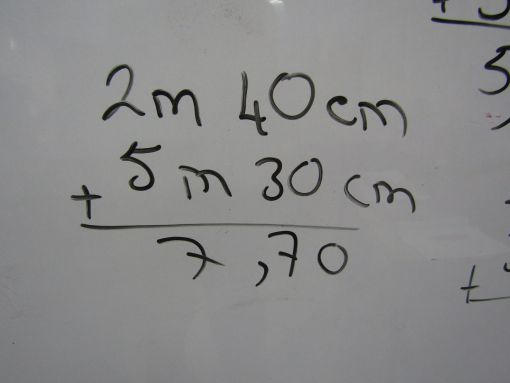 2m 40cm
+ 5m 30cm
7,70